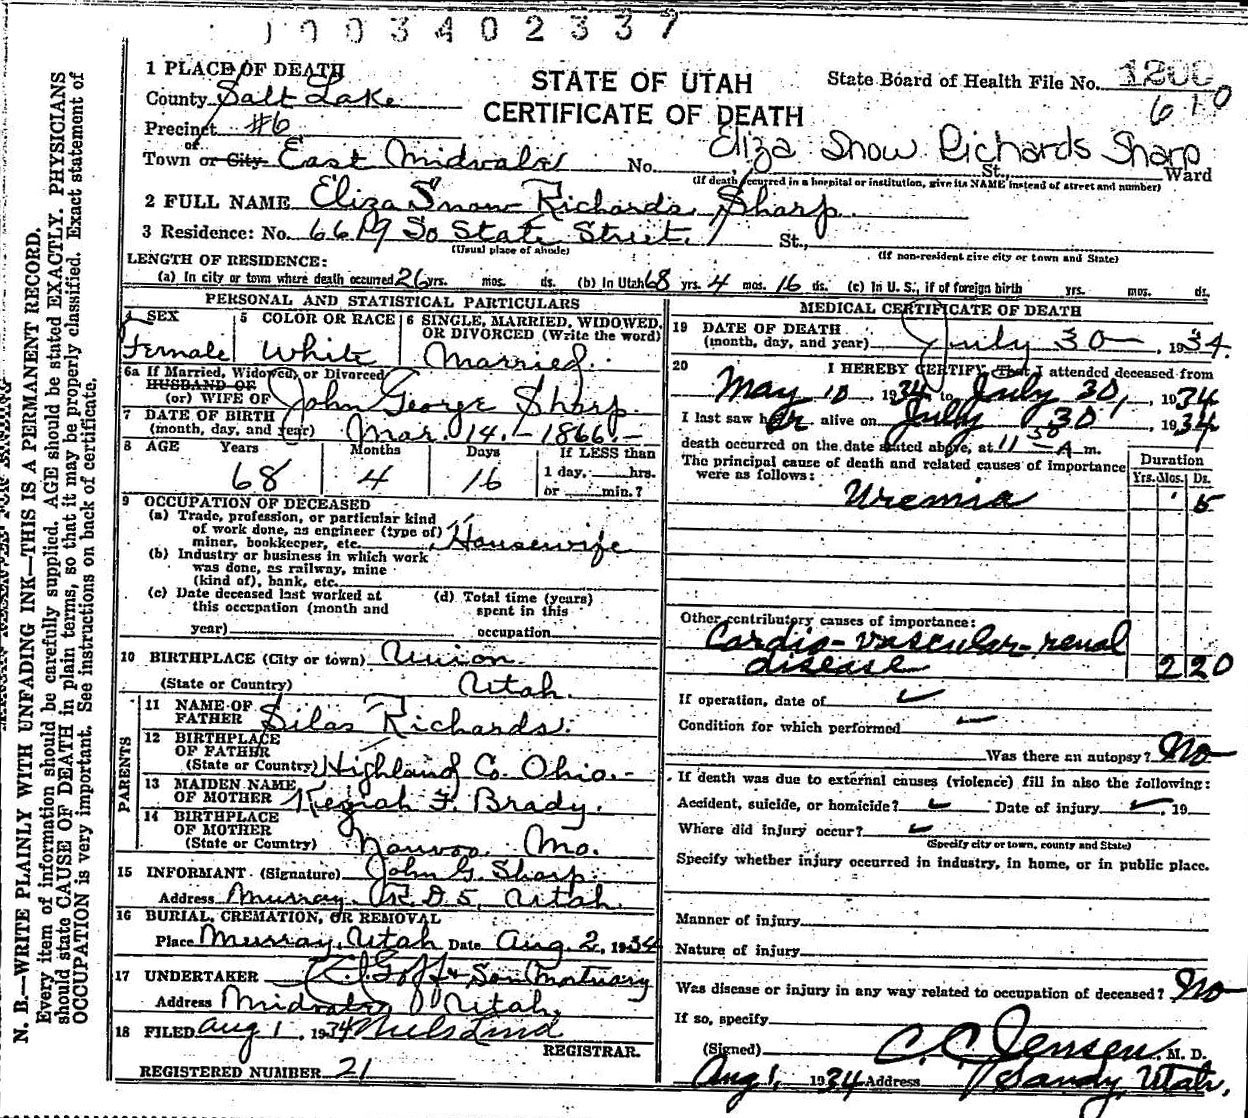 1003402337
1 PLACE OF DEATH
County Salt Lake
Precinct #6
of
Town or City East Midvale No. St., Ward
STATE OF UTAH
CERTIFICATE OF DEATH
State Board of Health File No. 1200
610
Eliza Snow Richards Sharp
(If death occurred in a hospital or institution, give its NAME instead of street and number)
2 FULL NAME Eliza Snow Richards Sharp
3 Residence: No. 6619 So State Street. St.,
(Usual place of abode) (If non-resident give city or town and State)
LENGTH OF RESIDENCE:
(a) In city or town where death occurred 26 yrs. mos. ds. (b) In Utah 68 yrs. 4 mos. 16 ds. (c) In U. S., if of foreign birth yrs. mos. ds.
PERSONAL AND STATISTICAL PARTICULARS
4 SEX 5 COLOR OR RACE 6 SINGLE, MARRIED, WIDOWED,
OR DIVORCED (Write the word)
Female White Married.
6a If Married, Widowed, or Divorced
HUSBAND OF
(or) WIFE OF John George Sharp
7 DATE OF BIRTH
(month, day, and year) Mar. 14.-1866.-
8 AGE Years Months Days If LESS than
68 4 16 1 day, hrs.
or min.?
9 OCCUPATION OF DECEASED
(a) Trade, profession, or particular kind
of work done, as engineer (type of)
miner, bookkeeper, etc. Housewife
(b) Industry or business in which work
was done, as railway, mine
(kind of), bank, etc.
(c) Date deceased last worked at (d) Total time (years)
this occupation (month and spent in this
year) occupation
10 BIRTHPLACE (City or town) Union
(State or Country) Utah.
PARENTS
11 NAME OF
FATHER Silas Richards.
12 BIRTHPLACE
OF FATHER
(State or Country) Highland Co. Ohio.-
13 MAIDEN NAME
OF MOTHER Keziah F. Brady.
14 BIRTHPLACE
OF MOTHER
(State or Country) Nauvoo Mo.
15 INFORMANT (Signature) John G. Sharp
Address Murray R. D. 5, Utah.
16 BURIAL, CREMATION, OR REMOVAL
Place Murray, Utah Date Aug. 2, 1934
17 UNDERTAKER Goff & Son Mortuary
Address Midvale Utah.
18 FILED Aug 1, 1934 Niels Lind
REGISTRAR.
REGISTERED NUMBER 21
MEDICAL CERTIFICATE OF DEATH
19 DATE OF DEATH
(month, day, and year) July 30, 1934.
20 I HEREBY CERTIFY, That I attended deceased from
May 10, 1934 to July 30, 1934
I last saw her alive on July 30, 1934
death occurred on the date stated above, at 11 50 A m.
The principal cause of death and related causes of importance
were as follows:
Duration
Yrs. Mos. Ds.
Uremia 5
Other contributory causes of importance:
Cardio-vascular-renal
disease 2 20
If operation, date of
Condition for which performed
Was there an autopsy? No
If death was due to external causes (violence) fill in also the following:
Accident, suicide, or homicide? Date of injury , 19
Where did injury occur?
(Specify city or town, county and State)
Specify whether injury occurred in industry, in home, or in public place.
Manner of injury
Nature of injury
Was disease or injury in any way related to occupation of deceased? No
If so, specify
(Signed) C. C. Jensen, M. D.
Aug 1, 1934 Address Sandy, Utah.
N. B.—WRITE PLAINLY WITH UNFADING INK—THIS IS A PERMANENT RECORD.
Every item of information should be carefully supplied. AGE should be stated EXACTLY. PHYSICIANS
should state CAUSE OF DEATH in plain terms, so that it may be properly classified. Exact statement of
OCCUPATION is very important. See instructions on back of certificate.